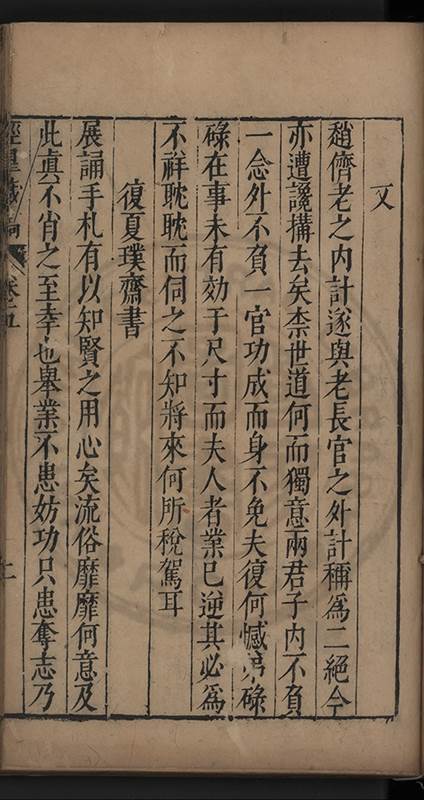 又
趙儕老之內計遂與老長官之外計稱為二絕今
亦遭讒搆去矣柰世道何而獨意兩君子內不負
一念外不負一官功成而身不免夫復何憾弟碌
碌在事未有効于尺寸而夫人者業已逆其必為
不祥耽耽而伺之不知將來何所稅駕耳
復夏璞齋書
展誦手札有以知賢之用心矣流俗靡靡何意及
此真不肖之至幸也舉業不患妨功只患奪志乃
卷之五